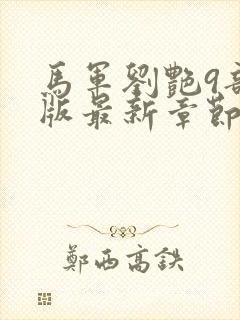 馬軍劉艷9部
版最新章節
鄭西高鉄